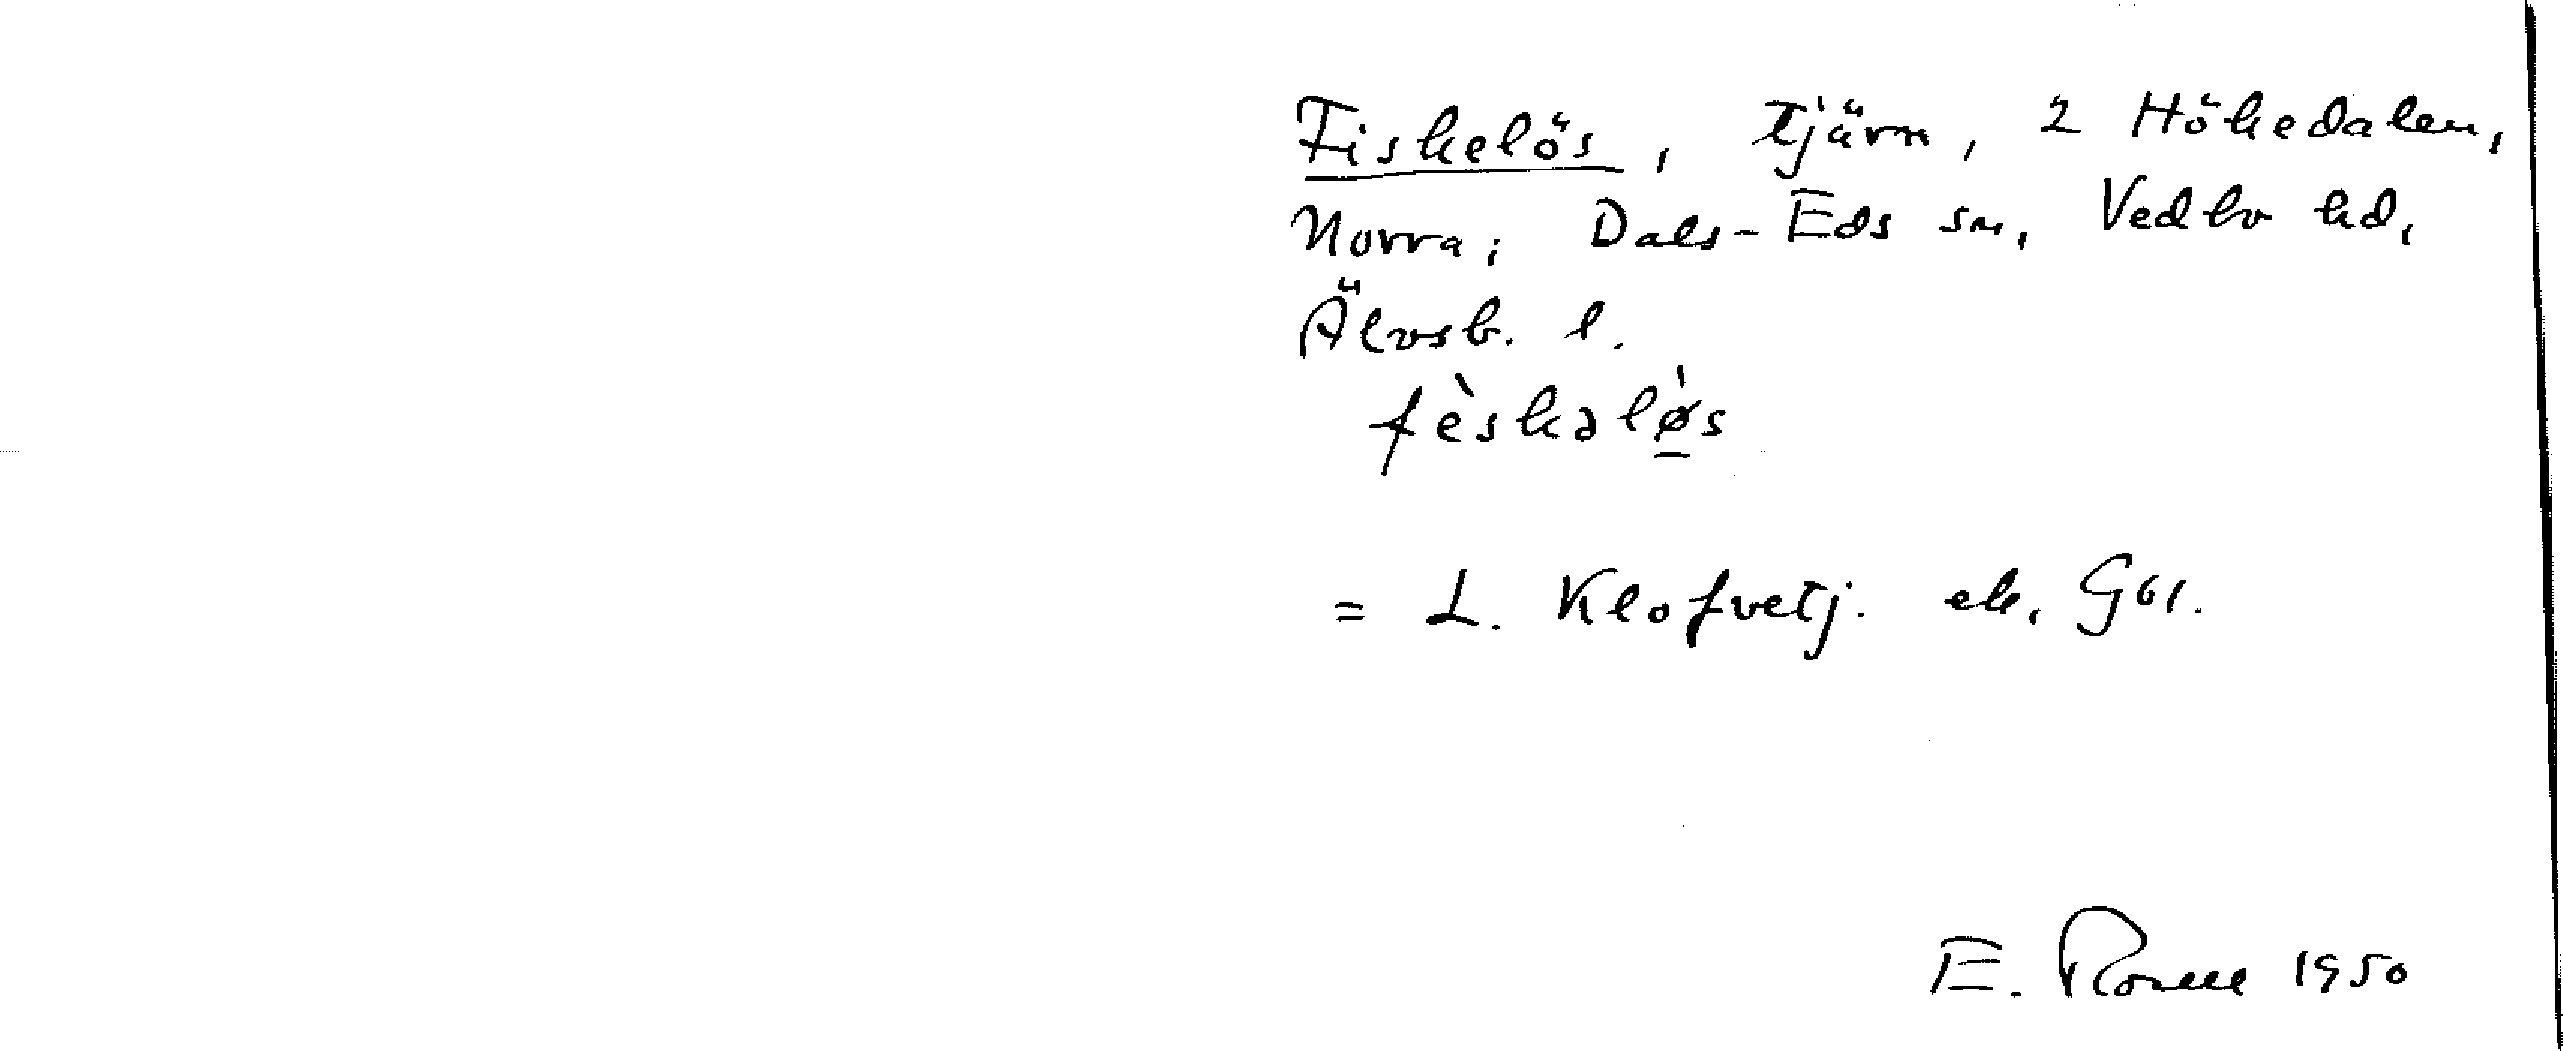 Fiskelös, tjärn, 2 Hökedalen,
Norra; Dals-Eds sn, Vedbo hd,
Älvsb. l.
fèskəlø̱̀s
= L. Klofvetj. ek. G61.
E. 1950